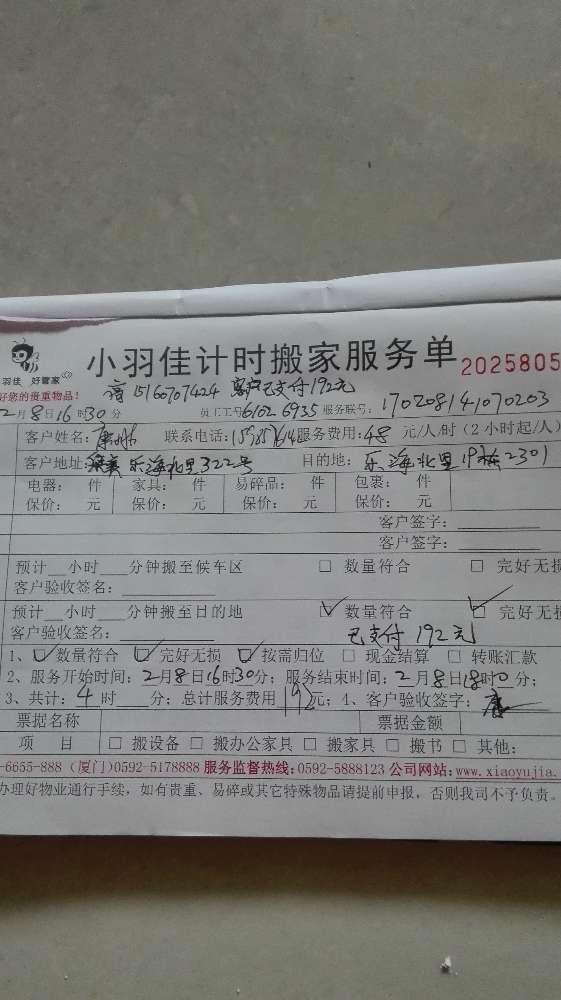 小羽佳计时搬家服务单 2025805
羽佳 好管家
好您的贵重物品!
15160707424 客户已支付192元
2月8日16时30分 员工工号61026935 服务联号:170208141070203
客户姓名:康 联系电话: 服务费用:48 元/人/时(2小时起/人)
客户地址: 乐海北里322号 目的地:乐海北里19栋2301
电器: 件 家具: 件 易碎品: 件 包裹: 件
保价: 元 保价: 元 保价: 元 保价: 元
客户签字:
客户签字:
预计__小时__分钟搬至候车区 □ 数量符合 □ 完好无损
客户验收签名:
预计__小时__分钟搬至目的地 ☑ 数量符合 ☑ 完好无损
客户验收签名: 已支付192元
1、☑数量符合 ☑完好无损 ☑按需归位 □ 现金结算 □ 转账汇款
2、服务开始时间:2月8日16时30分; 服务结束时间:2月8日18时30分;
3、共计:4时__分; 总计服务费用192元; 4、客户验收签字:康
票据名称 票据金额
项 目 □ 搬设备 □ 搬办公家具 □ 搬家具 □ 搬书 □ 其他:
-6655-888 (厦门)0592-5178888 服务监督热线:0592-5888123 公司网站:www.xiaoyujia.
办理好物业通行手续, 如有贵重、易碎或其它特殊物品请提前申报, 否则我司不予负责。